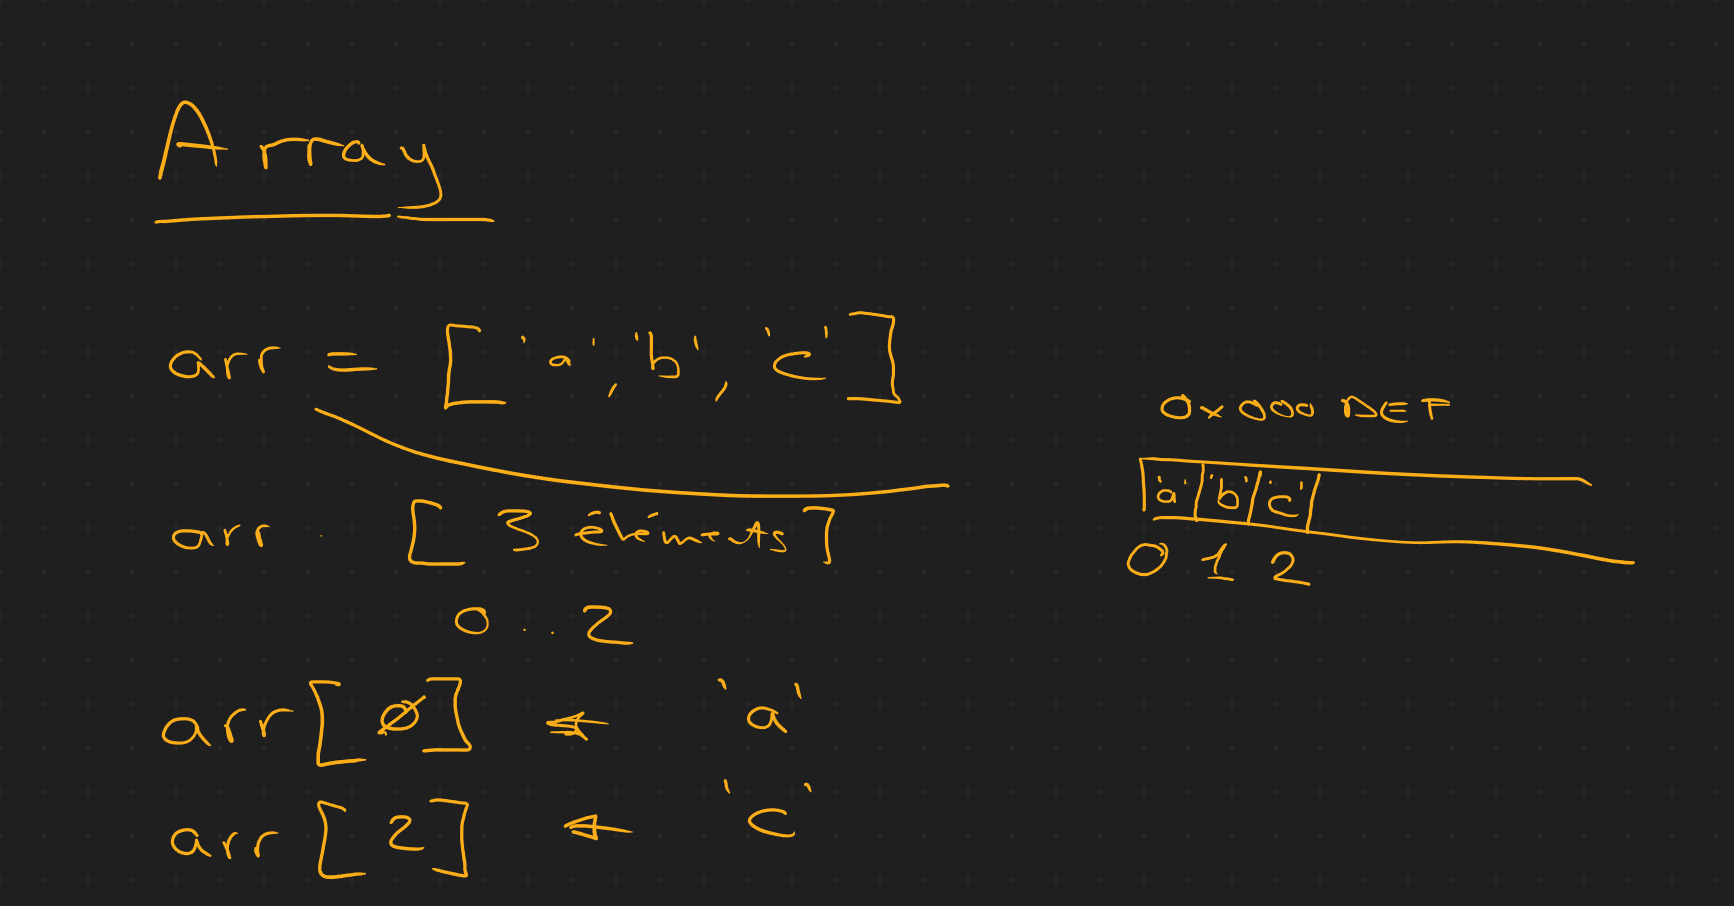 Array
arr = ['a', 'b', 'c']
arr [3 éléments]
0..2
arr[0] ← 'a'
arr[2] ← 'c'
0x000DEF
'a' 'b' 'c'
0 1 2